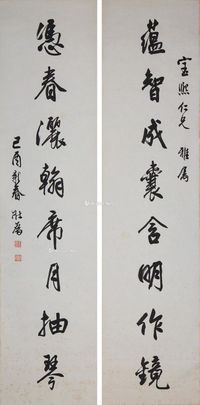 宝熙仁兄 雅属
蕴智成囊含明作镜
凭春洒翰席月抽琴
己酉新春